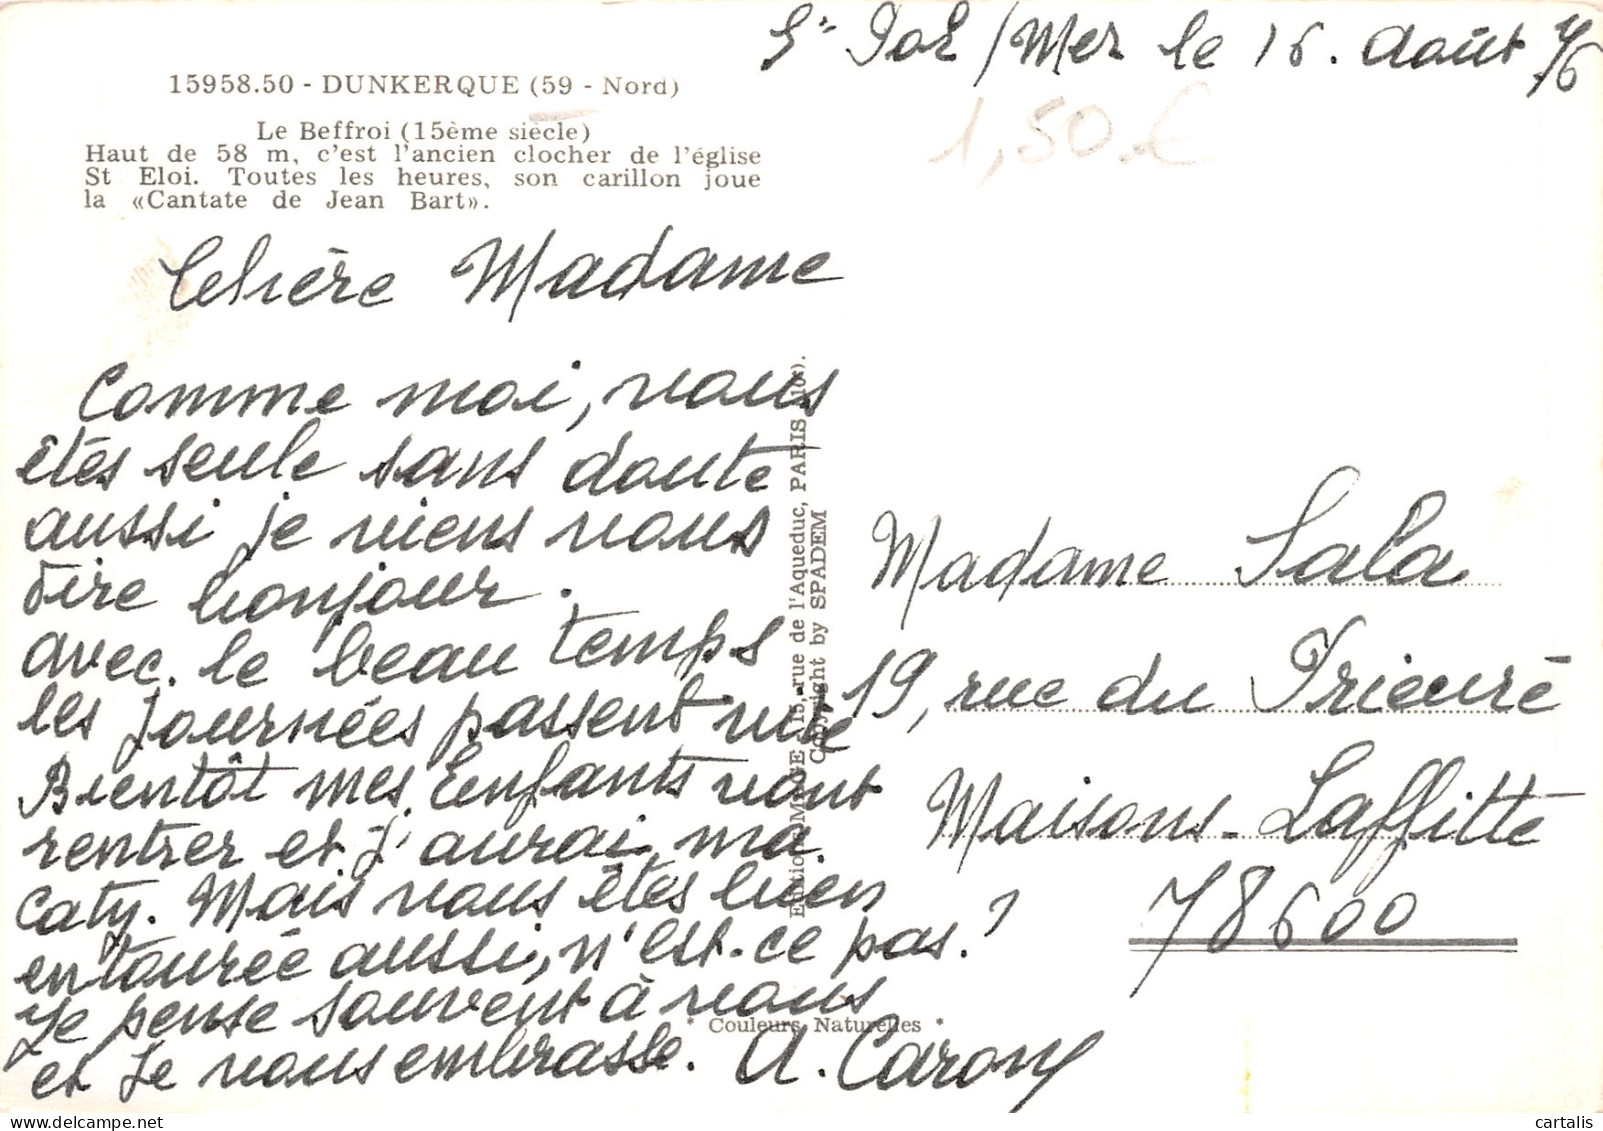 St Pol / Mer le 16. Août 76
1,50 €
15958.50 - DUNKERQUE (59 - Nord)
Le Beffroi (15ème siècle)
Haut de 58 m, c'est l'ancien clocher de l'église
St Eloi. Toutes les heures, son carillon joue
la «Cantate de Jean Bart».
Chère Madame
Comme moi, vous
êtes seule sans doute
aussi je viens vous
dire bonjour.
avec le beau temps
les journées passent vite
Bientôt mes Enfants vont
rentrer et j'aurai ma
Caty. Mais vous êtes bien
entourée aussi, n'est-ce pas?
Je pense souvent à vous
et je vous embrasse. A. Caron
Madame Sala
19, rue du Prieuré
Maisons-Laffitte
78600
15, rue de l'Aqueduc, PARIS
Copyright by SPADEM
* Couleurs Naturelles *
cartalis